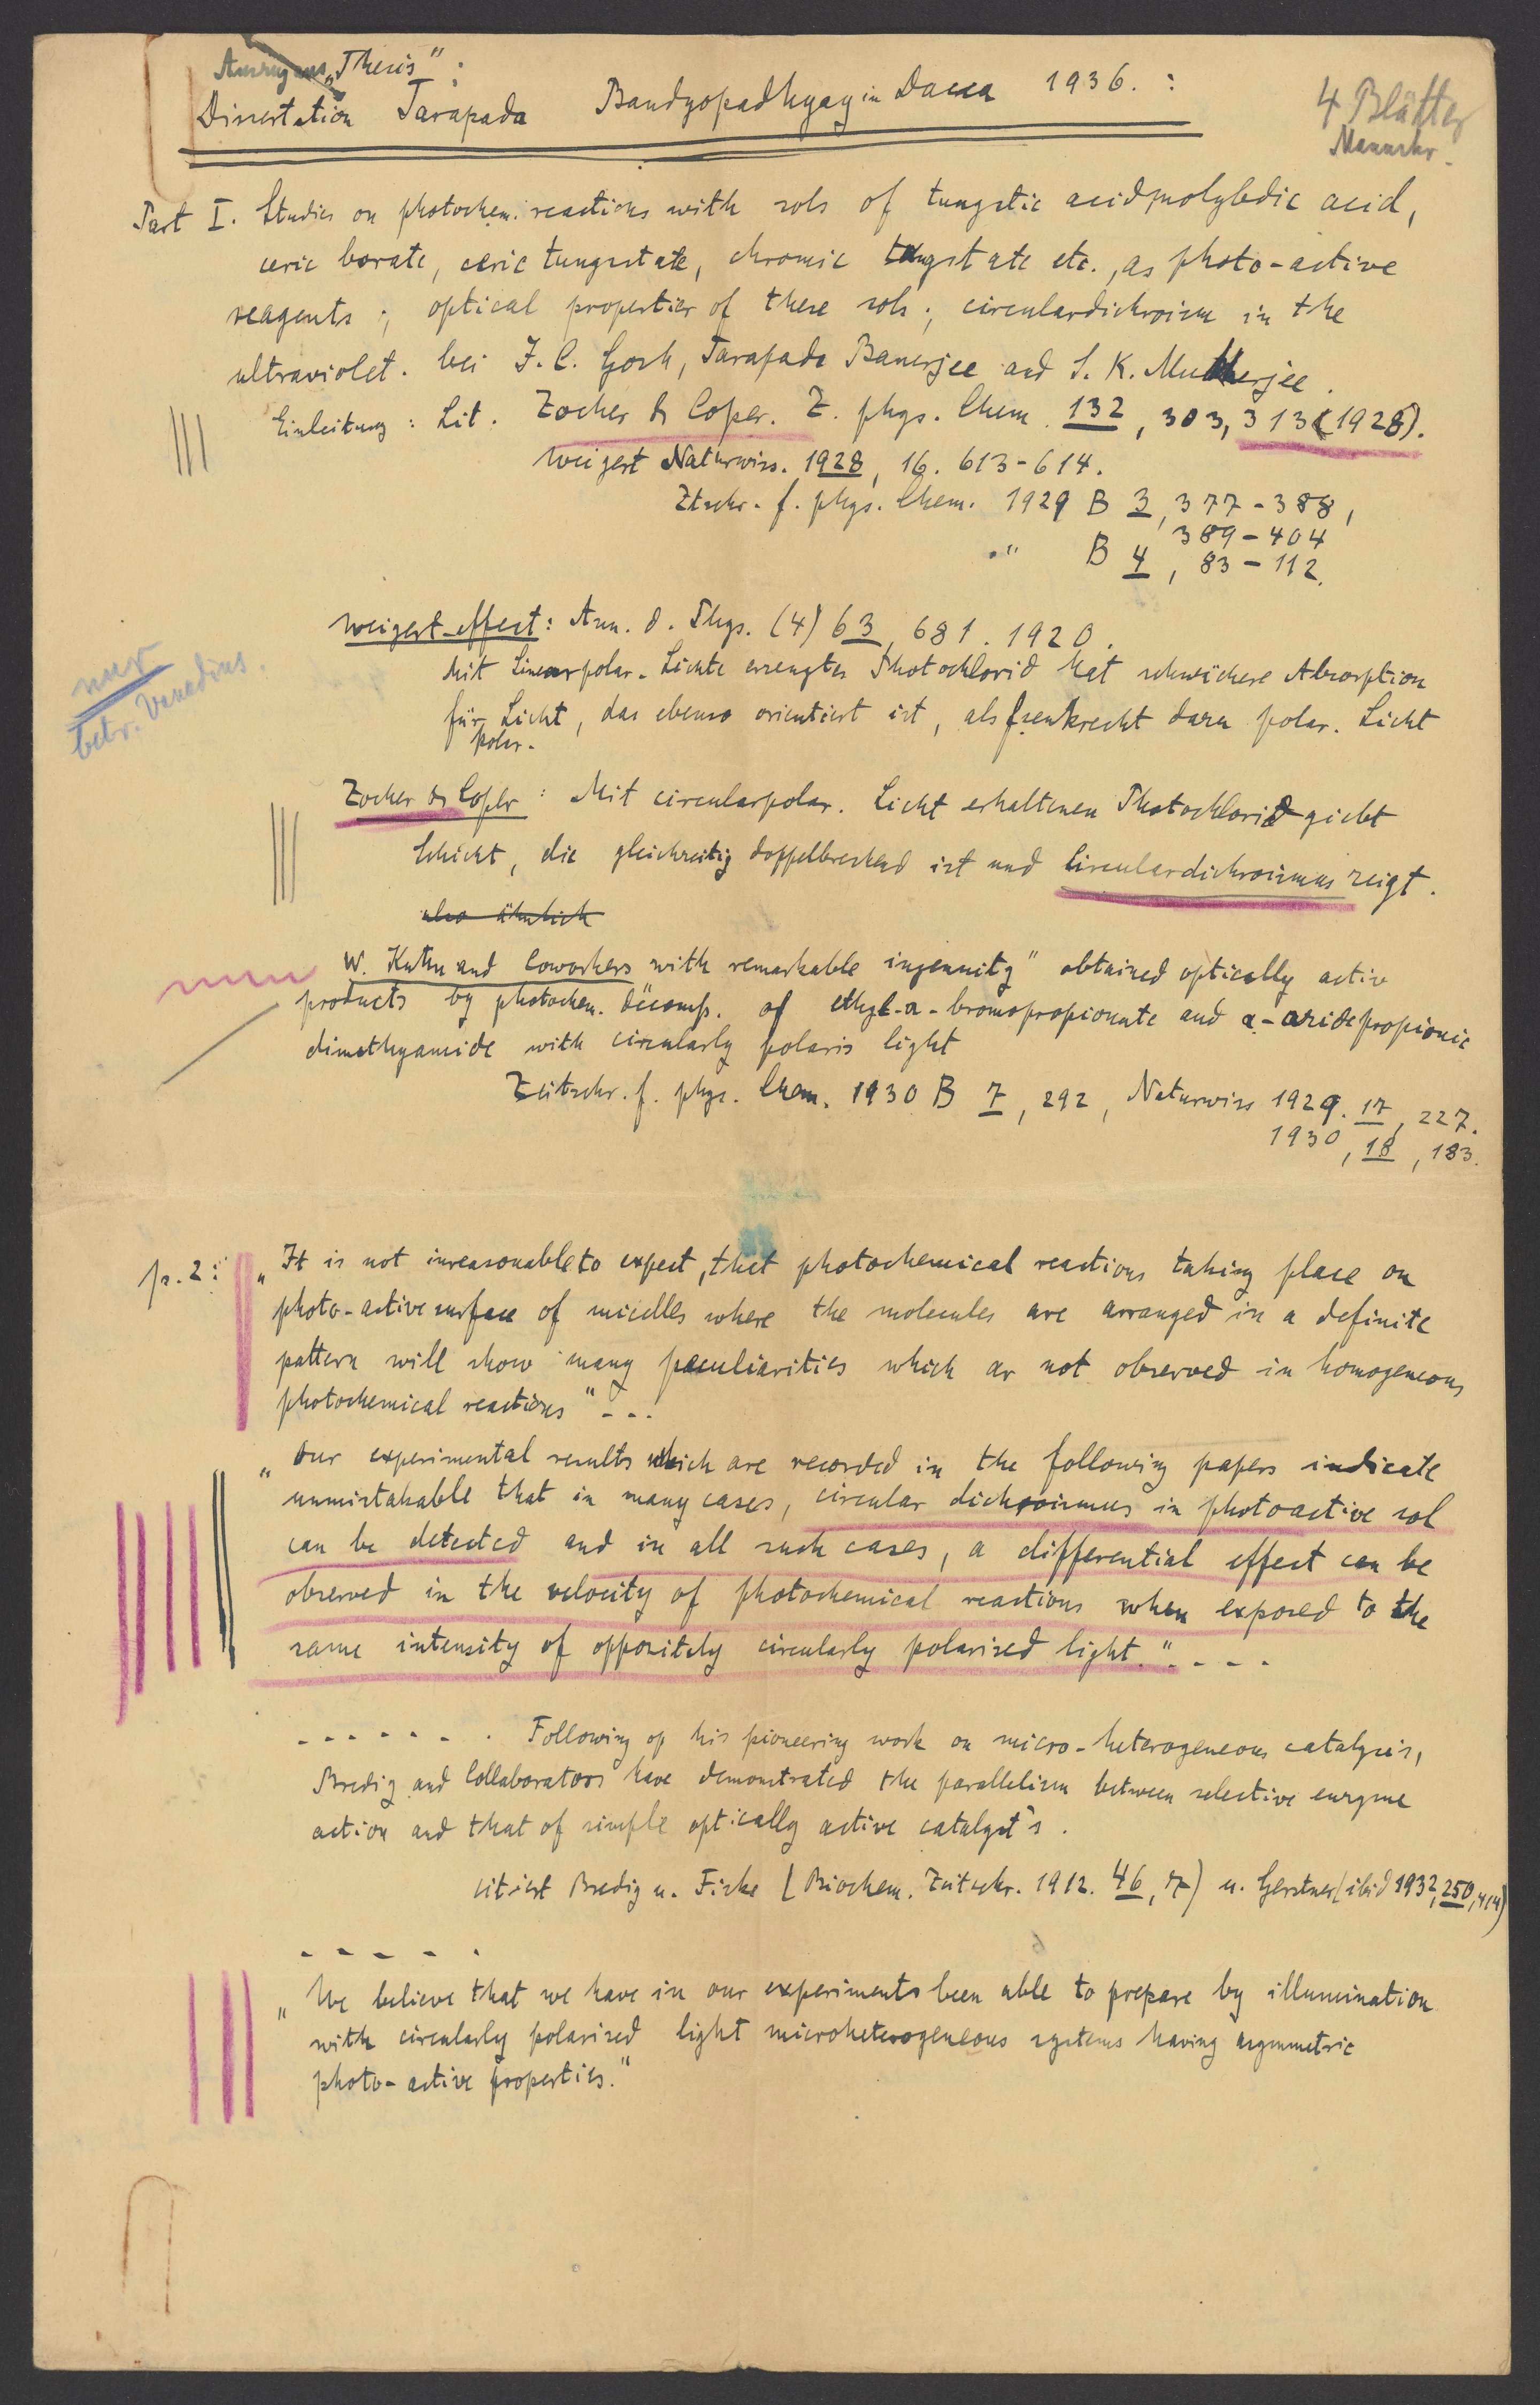 Auszug aus „Thesis" :
Dissertation Tarapada Bandyopadhyay in Dacca 1936. :
4 Blätter
Manuskr.
Part I. Studies on photochem. reactions with sols of tungstic acid, molybdic acid,
ceric borate, ceric tungstate, chromic tungstate etc., as photo-active
reagents ; optical properties of these sols ; circulardichroism in the
ultraviolet. bei J. C. Gosh, Tarapada Banerjee and S. K. Mukherjee.
Einleitung : Lit. Zocher & Coper. Z. phys. Chem. 132, 303, 313 (1928).
Weigert Naturwiss. 1928, 16. 613-614.
Ztschr. f. phys. Chem. 1929 B 3, 377-388,
389-404
" B 4, 83-112.
nur
betr. Vanadins.
Weigert-effect : Ann. d. Phys. (4) 63, 681. 1920.
Mit linearpolar. Lichte erzeugtes Photochlorid hat schwächere Absorption
für Licht, das ebenso orientiert ist, als f. senkrecht dazu polar. Licht
polar.
Zocher & Coper : Mit circularpolar. Licht erhaltenen Photochlorid giebt
Schicht, die gleichzeitig doppelbrechend ist und Circulardichroismus zeigt.
also ähnlich
W. Kuhn and Coworkers with remarkable ingenuity" obtained optically active
products by photochem. decomp. of ethyl-α-bromopropionate and α-azidepropionic
dimethyamide with circularly polaris light
Zeitschr. f. phys. Chem. 1930 B 7, 292, Naturwiss 1929. 17, 227.
1930, 18, 183.
p. 2: „It is not inreasonable to expect, that photochemical reactions taking place on
photo-active surface of micelles where the molecules are arranged in a definite
pattern will show many peculiarities which ar not observed in homogeneous
photochemical reactions" - - .
„Our experimental results which are recorded in the following papers indicate
unmistakable that in many cases, circular dichroismus in photoactive sol
can be detected and in all such cases, a differential effect can be
observed in the velocity of photochemical reactions when exposed to the
same intensity of oppositely circularly polarised light." - - - -
- - - - - - . Following op his pioneering work on micro-heterogeneous catalysis,
Bredig and Collaborators have demonstrated the parallelism between selective enzyme
action and that of simple optically active catalyst's.
citiert Bredig u. Fiske (Biochem. Zeitschr. 1912. 46, 7) u. Gerstner (ibid 1932, 250, 414)
- - - - .
„We believe that we have in our experiments been able to prepare by illumination
with circularly polarised light microheterogeneous systems having asymmetric
photo-active properties."